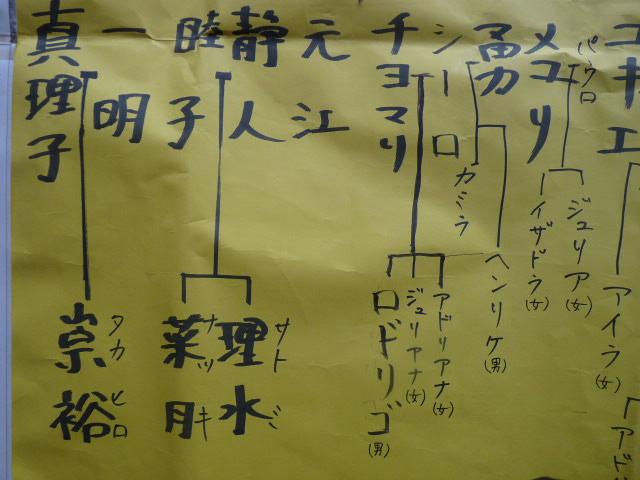 ユキエ
パウロ
メユリ
シーロ
チヨマリ
元江
静人
睦子
一明
真理子
アイラ(女)
ジュリア(女)
イザドラ(女)
カミラ
ヘンリケ(男)
アドリアナ(女)
ジュリアナ(女)
ロドリゴ(男)
理水
サトミ
菜月
ナツキ
崇裕
タカヒロ
アドリ